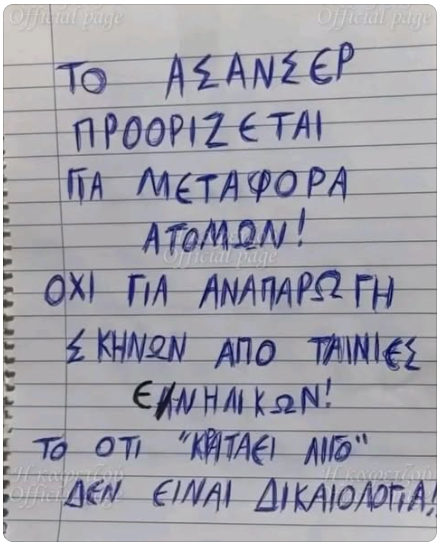 Official page Official page
ΤΟ ΑΣΑΝΣΕΡ
ΠΡΟΟΡΙΖΕΤΑΙ
ΓΙΑ ΜΕΤΑΦΟΡΑ
ΑΤΟΜΩΝ!
Official page
ΟΧΙ ΓΙΑ ΑΝΑΠΑΡΩΓΗ
ΣΚΗΝΩΝ ΑΠΟ ΤΑΙΝΙΕΣ
ΕΝΗΛΙΚΩΝ!
ΤΟ ΟΤΙ "ΚΡΑΤΑΕΙ ΛΙΓΟ"
Official page Official page
ΔΕΝ ΕΙΝΑΙ ΔΙΚΑΙΟΛΟΓΙΑ!